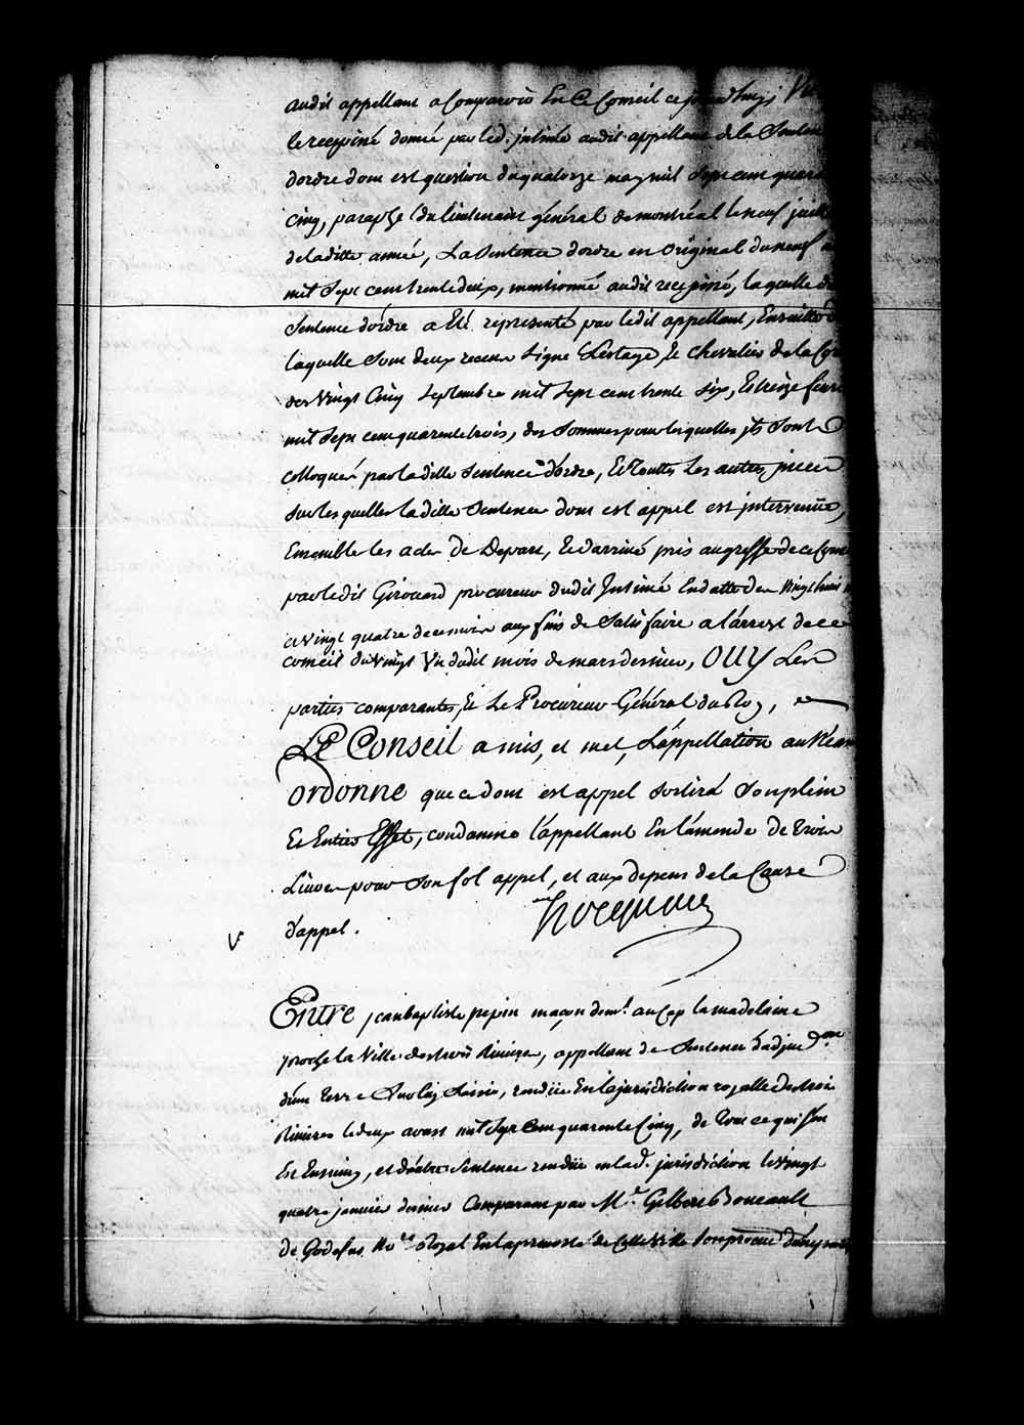 audit appellant a Comparoir En Ce Conseil ce jourd'huy; Vu
le recepissé donné par led. jntimé audit appellant de la Senten
dordre dont est question du quatorze may mil Sept cent quara
cinq, paraphé du lieutenant général de montréal le neuf juill
de laditte année, La Sentence dordre en original du neuf
mil Sept cent trente deux, mentionné audit recepissé, laquelle d
Sentence dordre a Eté representé par ledit appellant, Ensuitte d
laquelle Sont deux receus Signé Lestage, & chevalier de la Cor
des Vingt Cinq Septembre mil Sept cent trente Six, Et treize fevri
mil Sept cent quarente trois, des Sommes pour lesquelles jls Sont
colloqués par ladille Sentence d'ordre, Et Touttes Les autres pieces
Sur lesquelles ladille Sentence dont est appel est jntervenüe,
Ensemble les actes de Depart, & darrivé pris au greffe de ce Cons
par ledit Girouard procureur dudit Jntimé En datte des Vingt huit
et vingt quatre de ce mois aux fins de Satisfaire a l'arrest de ce
conseil du vingt Un dudit mois de mars dernier, OUY Les
parties comparantes, & Le Procureur Général du Roy,
LE Conseil a mis, et met, L'appellation au Néan
ordonne que ce dont est appel Sortira Son plein
Et Entier Effet, condamne l'appellant En l'amende de trois
Livres pour Son fol appel, et aux depens de la Cause
d'appel.
Hocquart
Entre jean baptiste pepin maçon demt. au Cap la madelaine
proche la Ville des trois Rivieres, appellant de Sentence d'adjudon.
d'une terre Sur luy Saisie, rendüe En la jurisdiction royalle des trois
Rivieres le deux aoust mil Sept Cent quarente Cinq, de Tout ce qui S'en
Est Ensuivy, et d'autre Sentence rendüe en lad. jurisdiction le vingt
quatre janvier dernier Comparant par Me. Gilbert Boucault
de Godefus Nore. Royal En la prevosté de Cette Ville Son procureur